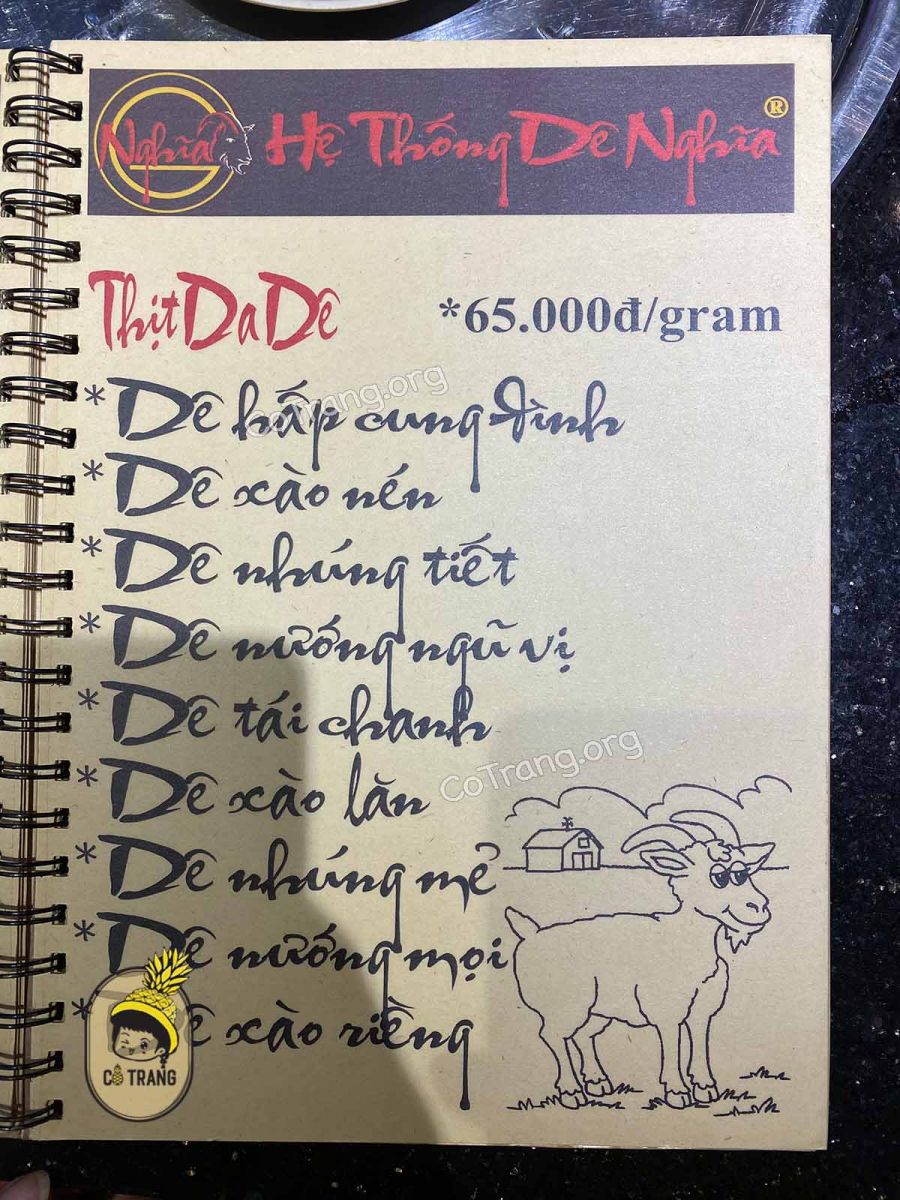 Nghĩa Hệ Thống Dê Nghĩa®
Thịt Da Dê *65.000đ/gram
*Dê hấp cung đình
CoTrang.org
*Dê xào nén
*Dê nhúng tiết
*Dê nướng ngũ vị
*Dê tái chanh
CoTrang.org
*Dê xào lăn
*Dê nhúng mẻ
*Dê nướng mọi
*Dê xào riềng
CÔ TRANG